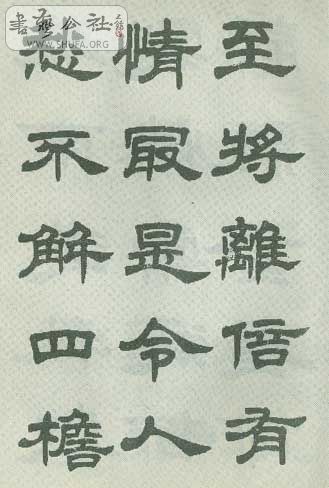 書藝公社
WWW.SHUFA.ORG
至將離倍有
情冣是令人
愁不解四檐